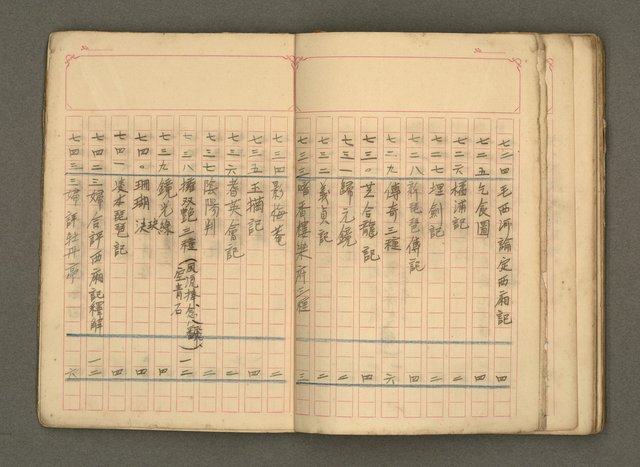 七二四毛西河論定西廂記 四
七二五乞食圖 四
七二六橘浦記 二
七二七埋劍記 二
七二八許琵琶傳記 四
七二九傳奇三種 六
七三〇其合龍記 四
七三一歸元鏡 二
七三二義貞記 二
七三三暗香樓樂府三種 三
七三四影梅菴 二
七三五玉搔記 二
七三六耆英會記 二
七三七陰陽判 二
七三八擁双艷三種(風流棒念八飜 一二
空青石)
七三九鏡光緣 四
七四〇珊瑚玦 四
七四一凌本琵琶記 四
七四二三婦合評西廂記釋解 一二
七四三三婦評牡丹亭 六